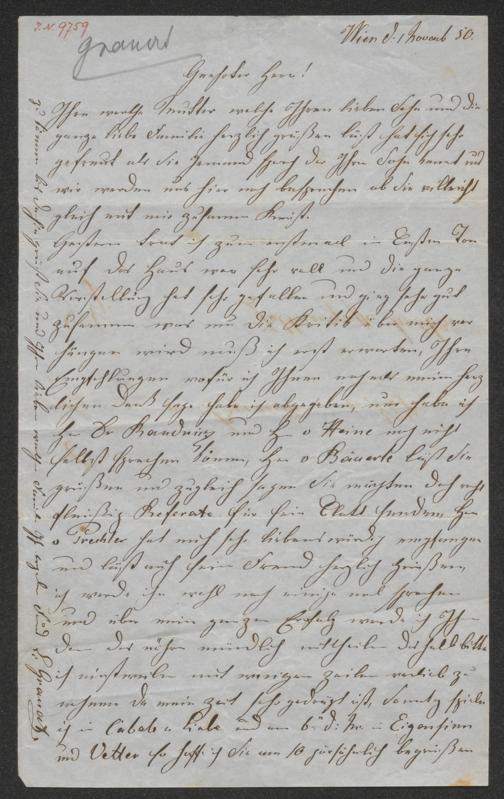 I.N. 9759
Grandt
Wien d. 1 Novemb 50.
Geehrter Herr!
Ihre werthe Mutter welche Ihren lieben Sohn und die
ganze liebe Familie herzlich grüßen läßt hat sich sehr
gefreut als Sie Jemand sprach der Ihren Sohn kennt und
wir werden uns hier noch besprechen ob Sie vielleicht
gleich mit mir zusammen reist.
Gestern trat ich zum erstmal in Ersten Ton
auf das Haus war sehr voll und die ganze
Vorstellung hat sehr gefallen und ging sehr gut
zusammen was nun die Kritik über mich ver
hängen wird muß ich erst erwarten, Ihre
Empfehlungen wofür ich Ihnen nochmals meinen herz
lichen Dank sage habe ich abgegeben, nur habe ich
H Dr und H v Heine noch nicht
selbst sprechen können, Herr v Bäuerle läßt Sie
grüßen und zugleich sagen Sie möchten doch recht
fleißig Referate für sein Blatt senden, Herr
v Prechtler hat mich sehr liebenswürdig empfangen
und läßt auch seinen Freund herzlich grüßen,
ich werde ihn wohl noch einige mal sprechen
und über meinen ganzen Erfolg werde ich Ih
nen das nähere mündlich mittheilen deshalb bitte
ich einstweilen mit wenigen Zeilen vorlieb zu
nehmen da meine Zeit sehr gedrängt ist, Samstag spiele
ich in Cabale u Liebe und am in Eigensinn
und Vetter so hoffe ich Sie am 10 persönlich begrüßen
zu können bis dahin grüßt Sie und Ihre liebe